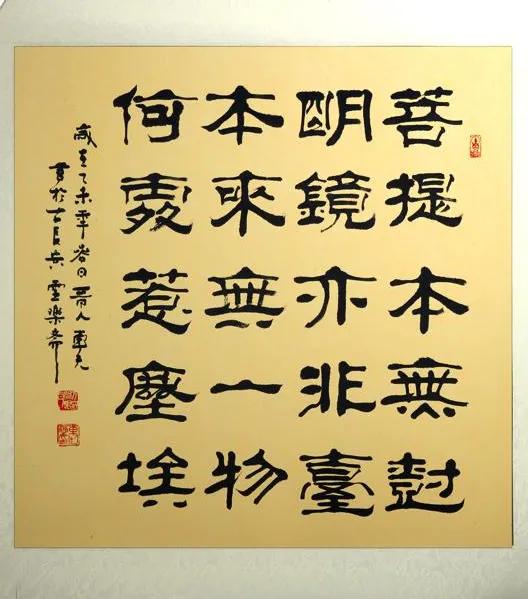 菩提本無尌
朙鏡亦非臺
本來無一物
何處惹塵埃
歲在乙未年春日晉人
書於古長安樂齋